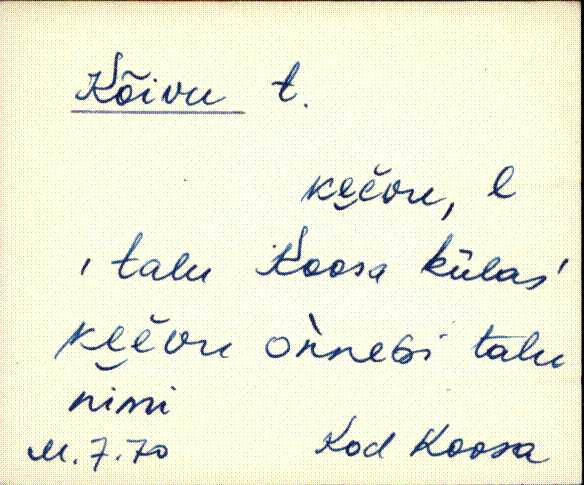 Kõivu t.
ke̮ĕvu, e
' talu Koosa külas'
ke̮ĕvu oǹnesi talu
nimi
M. 7.70 Kod Koosa